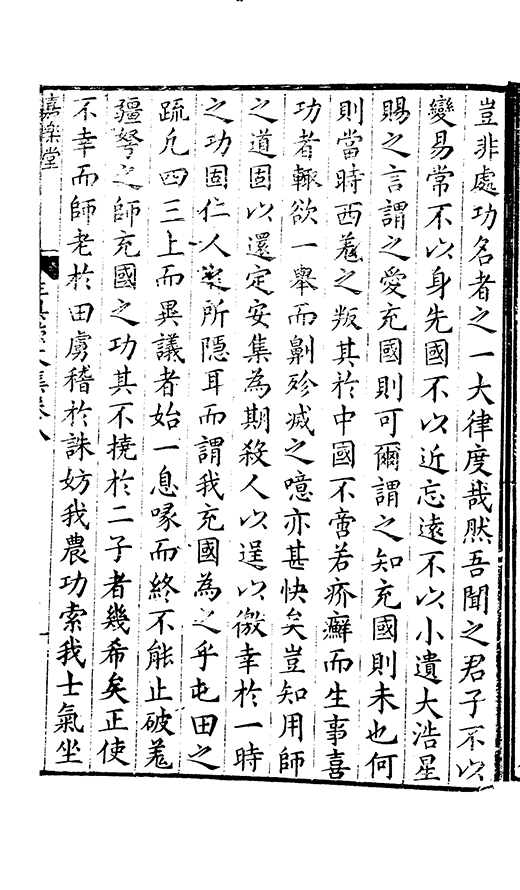 豈非處功名者之一大律度哉然吾聞之君子不以
變易常不以身先國不以近忘遠不以小遺大浩星
賜之言謂之愛充國則可爾謂之知充國則未也何
則當時西羌之叛其於中國不啻若疥癬而生事喜
功者輙欲一舉而劓殄滅之噫亦甚快矣豈知用師
之道固以還定安集為期殺人以逞以徼幸於一時
之功固仁人之所隱耳而謂我充國為之乎屯田之
疏凢四三上而異議者始一息喙而終不能止破羌
彊弩之師充國之功其不撓於二子者幾希矣正使
不幸而師老於田虜稽於誅妨我農功索我士氣坐
嘉樂堂
文集卷八